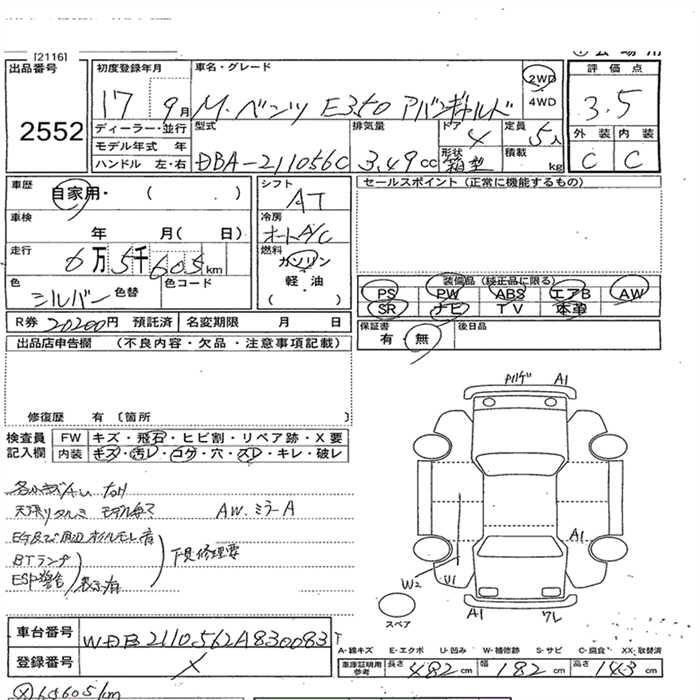 [2116]
出品番号
2552
初度登録年月
17 9月
車名・グレード
M.ベンツ E350 アバンギャルド
2WD
4WD
評価点
3.5
外装 内装
C C
ディーラー・並行
モデル年式 年
ハンドル 左・右
型式
DBA-211056C
排気量
3.49cc
ドア
4
形状
箱型
定員
5人
積載
kg
車歴
自家用・ ( )
車検
年 月( 日)
走行
6万5千605km
色
シルバー
色替
色コード
シフト
AT
冷房
オートA/C
燃料
ガソリン
軽・油
( )
セールスポイント (正常に機能するもの)
装備品 (純正品に限る)
PS PW ABS エアB AW
SR ナビ TV 本革
R券 20200円 預託済 名変期限 月 日
保証書
有・無
後日品
出品店申告欄 (不良内容・欠品・注意事項記載)
修復歴 有 〔箇所
検査員
記入欄
FW キズ・飛石・ヒビ割・リペア跡・X要
内装 キズ・汚レ・コゲ・穴・スレ・キレ・破レ
天張リタルミ
AW.ミラーA
BTランプ
ESP警告
表示有
下見修理要
ハゲ A1
A1
W2
U1
A1
ワレ
スペア
車台番号 WDB2110562A830083
登録番号
A-線キズ E-エクボ U-凹み W-補修跡 S-サビ C-腐食 XX-取替済
車庫証明用
参考
長さ 482cm 幅 182cm 高さ 143cm
65605km